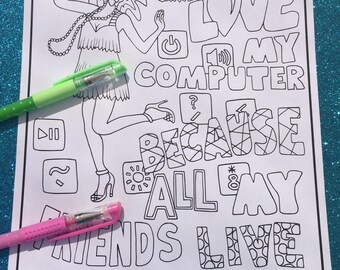 LOVE
MY
COMPUTER
?
BECAUSE
~
*
8
ALL MY
FRIENDS LIVE